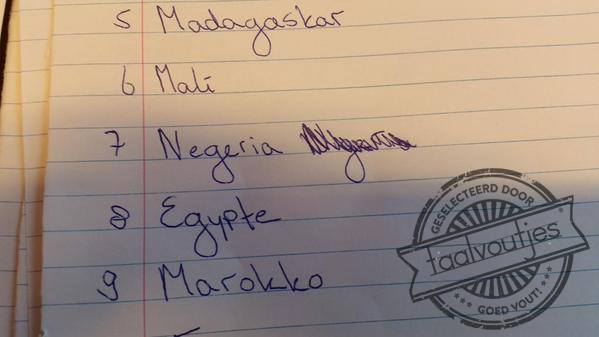 5 Madagaskar
6 Mali
7 Negeria
8 Egypte
9 Marokko
GESELECTEERD DOOR
taalvoutjes
GOED VOUT!